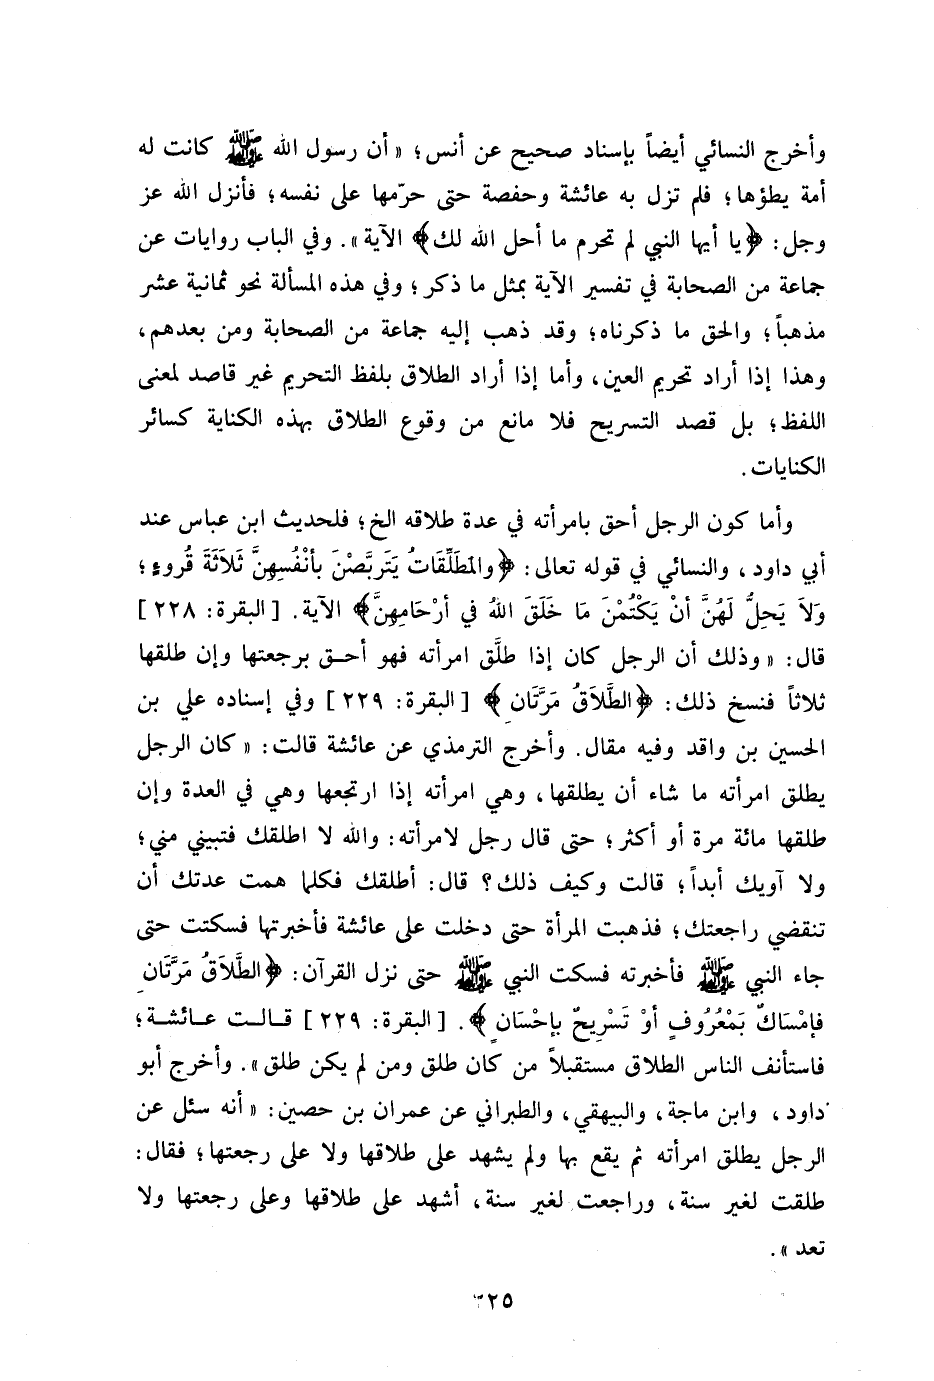 وأخرج النسائي أيضاً بإسناد صحيح عن أنس؛ « أن رسول الله ﷺ كانت له
أمة يطؤها؛ فلم تزل به عائشة وحفصة حتى حرّمها على نفسه؛ فأنزل الله عز
وجل: ﴿يا أيها النبي لم تحرم ما أحل الله لك﴾ الآية». وفي الباب روايات عن
جماعة من الصحابة في تفسير الآية بمثل ما ذكر؛ وفي هذه المسألة نحو ثمانية عشر
مذهباً؛ والحق ما ذكرناه؛ وقد ذهب إليه جماعة من الصحابة ومن بعدهم،
وهذا إذا أراد تحريم العين، وأما إذا أراد الطلاق بلفظ التحريم غير قاصد لمعنى
اللفظ؛ بل قصد التسريح فلا مانع من وقوع الطلاق بهذه الكناية كسائر
الكنايات.
وأما كون الرجل أحق بامرأته في عدة طلاقه الخ؛ فلحديث ابن عباس عند
أبي داود، والنسائي في قوله تعالى: ﴿والمَطَلِّقَاتُ يَتَربَّصْنَ بأنْفُسِهِنَّ ثَلاَثَةَ قُروءٍ؛
وَلاَ يَحِلُّ لَهُنَّ أنْ يَكْتُمْنَ مَا خَلَقَ اللهُ في أرْحَامِهِنَّ﴾ الآية. [البقرة: ٢٢٨]
قال: « وذلك أن الرجل كان إذا طلَّق امرأته فهو أحق برجعتها وإن طلقها
ثلاثاً فنسخ ذلك: ﴿الطَّلاَقُ مَرَّتَانِ﴾ [البقرة: ٢٢٩] وفي إسناده علي بن
الحسين بن واقد وفيه مقال. وأخرج الترمذي عن عائشة قالت: « كان الرجل
يطلق امرأته ما شاء أن يطلقها، وهي امرأته إذا ارتجعها وهي في العدة وإن
طلقها مائة مرة أو أكثر؛ حتى قال رجل لامرأته: والله لا اطلقك فتبيني مني؛
ولا آويك أبداً؛ قالت وكيف ذلك؟ قال: أطلقك فكلما همت عدتك أن
تنقضي راجعتك؛ فذهبت المرأة حتى دخلت على عائشة فأخبرتها فسكتت حتى
جاء النبي ﷺ فأخبرته فسكت النبي ﷺ حتى نزل القرآن: ﴿الطَّلاَقُ مَرَّتَانِ
فإمْسَاكٌ بَمْعُرُوفٍ أوْ تَسْرِيحٌ بإحْسَانٍ﴾. [البقرة: ٢٢٩] قـالـت عـائـشـة؛
فاستأنف الناس الطلاق مستقبلاً من كان طلق ومن لم يكن طلق». وأخرج أبو
داود، وابن ماجة، والبيهقي، والطبراني عن عمران بن حصين: « أنه سئل عن
الرجل يطلق امرأته ثم يقع بها ولم يشهد على طلاقها ولا على رجعتها؛ فقال:
طلقت لغير سنة، وراجعت لغير سنة، أشهد على طلاقها وعلى رجعتها ولا
تعد ».
٣٢٥